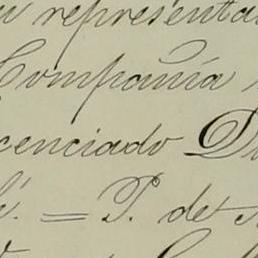 representa
Compañía
cenciado D
é. = P. de